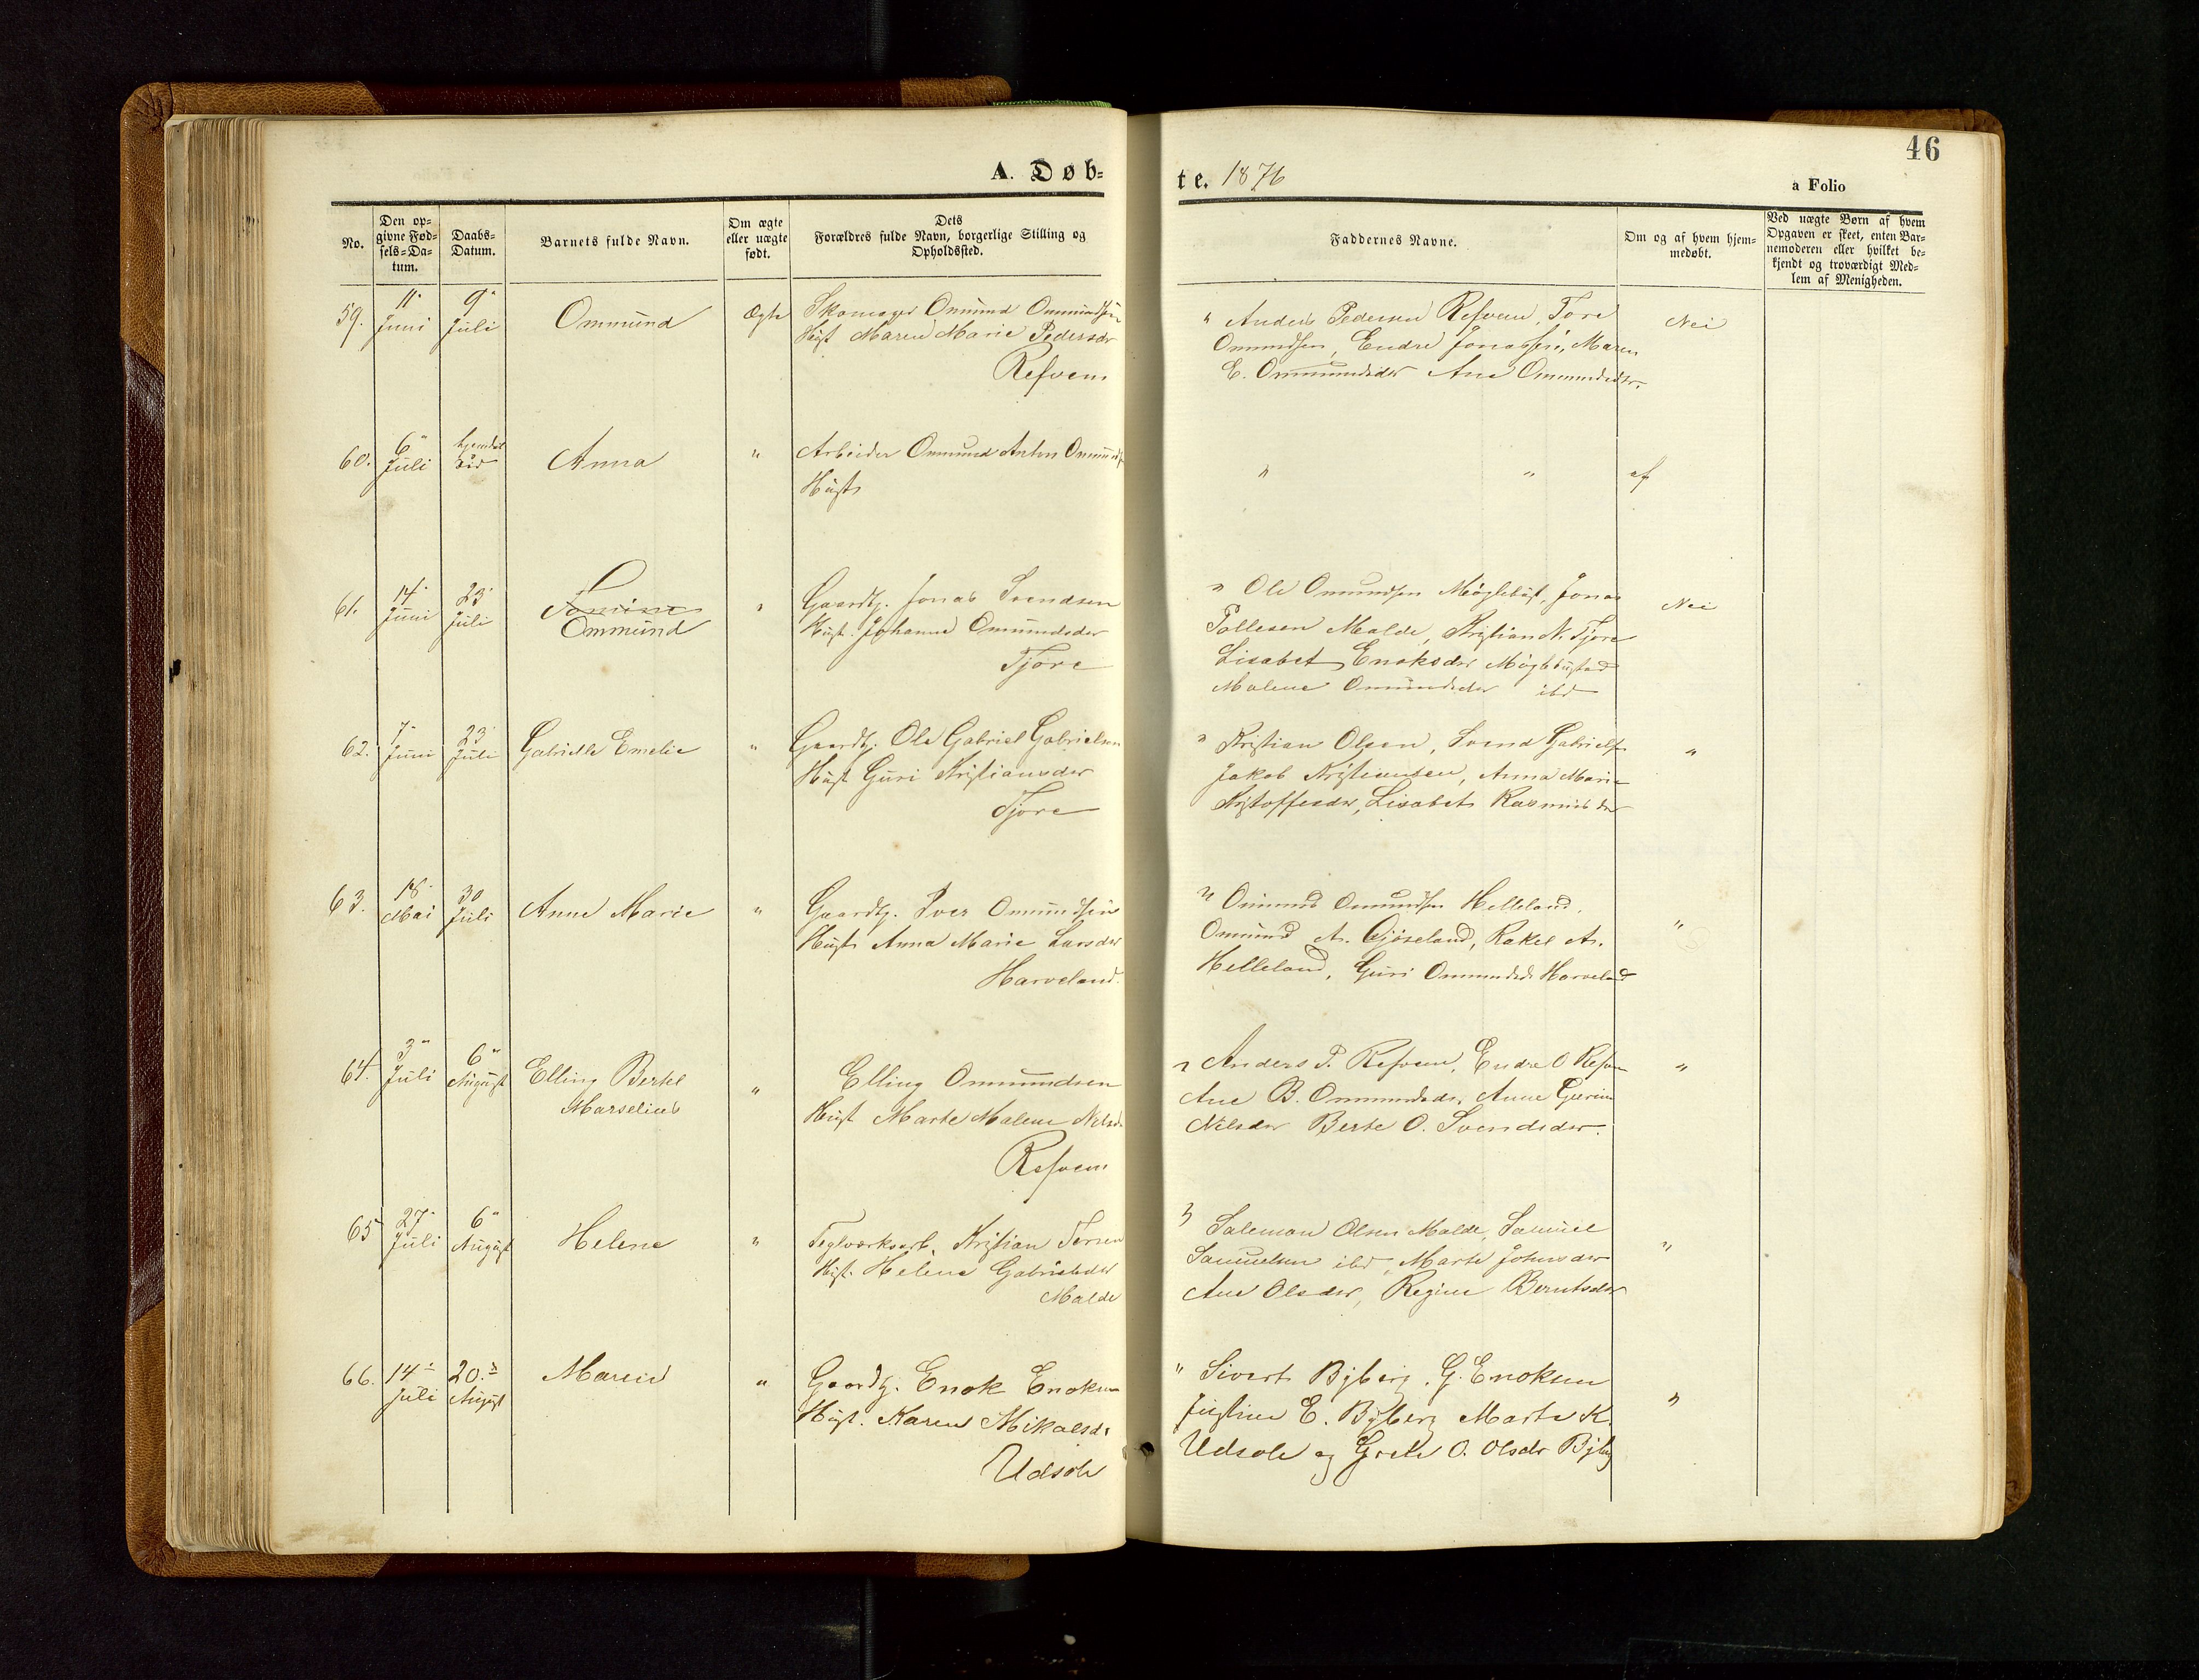 46
A. Døb=
te. 1876
a Folio
No.
Den op=
givne Fød=
sels=Da=
tum.
Daabs=
Datum.
Barnets fulde Navn.
Om ægte
eller uægte
født.
Dets
Forældres fulde Navn, borgerlige Stilling og
Opholdssted.
Faddernes Navne.
Om og af hvem hjem=
medøbt.
Ved uægte Børn af hvem
Opgaven er skeet, enten Bar=
nemoderen eller hvilket be=
kjendt og troværdigt Med=
lem af Menigheden.
59.
11
Juni
9
Juli
Ommund
Ægte
Skomager Ommund Ommundsen
Hust Maren Marie Pedersdr
Refvem
" Anders Pedersen Refvem, Tore
Omundsen, Endre Jonassen, Maren
E. Ommundsdr Ane Ommundsdtr.
Nei
60.
6
Juli
Anna
"
Arbeider Ommund Anton
Hust
"
"
af
61.
14
Juni
23
Juli
Ommund
"
Gaardbr. Jonas Svendsen
Hust. Johanne Omundsdr
Tjore
" Ole Omundsen Møglebust, Jonas
Tollesen Malde, Kristian N. Tjore
Lisabet Enoksdr Møglebustad
Malene Omundsdr ibd
Nei
62.
7
Juni
23
Juli
Gabrielle Emelie
"
Gaardbr. Ole Gabriel Gabrielsen
Hust Guri Kristiansdr
Tjore
" Kristian Olsen, Svend Gabrielsn
Jakob Kristiansen, Anna Marie
Kristoffersdr, Lisabet Rasmusdr
"
63.
18
Mai
30
Juli
Anne Marie
"
Gaardbr. Iver Omundsen
Hust Anna Marie Larsdr
Harveland.
" Ommund Omundsen Helleland,
Ommund A. Gjøseland, Rakel A.
Helleland, Guri Ommundsdr Harveland
"
64.
3
Juli
6
August
Elling Bertel
Marselius
"
Elling Ommundsen
Hust Marte Malene Nilsdr
Refvem
" Anders P. Refvem, Endre O Refvem
Ane B. Ommundsdr, Anne
Nilsdr Berte O. Svendsdr.
"
65
27
Juli
6
August
Helene
"
Teglværksarb. Kristian Torsen
Hust. Helene Gabrielsdr
Malde
" Salemon Olsen Malde, Samuel
Samuelsen ibd, Marte Johnsdr
Ane Olsdr, Regine Berntsdr
"
66.
14
Juli
20.
August
"
Gaardbr. Enok Enoksen
Hust. Karen Mikalsdr
Udsole
" Sivert Byberg, G. Enoksen
Justine E. Byberg Marte K.
Udsole og Grete O. Olsdr Byberg
"